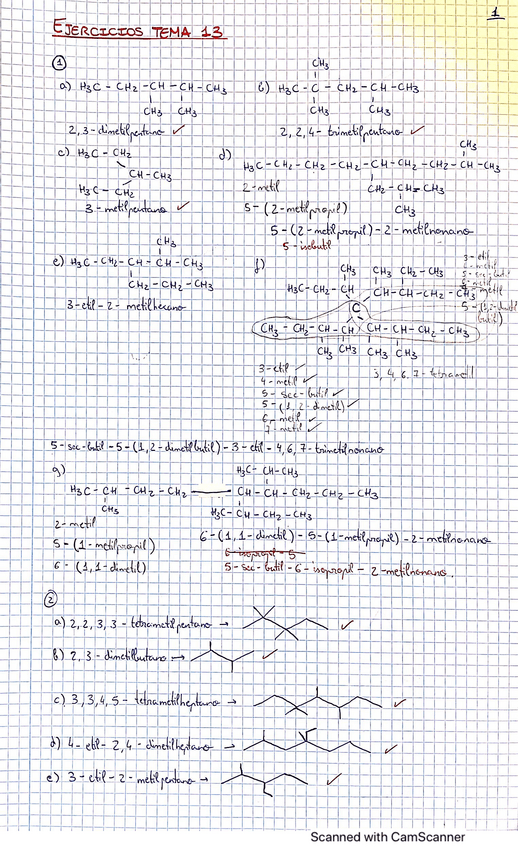 1
EJERCICIOS TEMA 13
①
a) H₃C - CH₂ - CH - CH - CH₃
CH₃ CH₃
2,3-dimetilpentano ✓
b) CH₃
H₃C - C - CH₂ - CH - CH₃
CH₃ CH₃
2,2,4-trimetilpentano ✓
c) H₃C - CH₂
CH - CH₃
H₃C - CH₂
3-metilpentano ✓
d) CH₃
H₃C - CH₂ - CH₂ - CH₂ - CH - CH₂ - CH₂ - CH - CH₃
CH₂ - CH - CH₃
CH₃
2-metil
5-(2-metilpropil)
5-(2-metilpropil)-2-metilnonano
5-isobutil
e) CH₃
H₃C - CH₂ - CH - CH - CH₃
CH₂ - CH₂ - CH₃
3-etil-2-metilhexano
f) CH₃ CH₃ CH₂ - CH₃
H₃C - CH₂ - CH CH - CH - CH₂ - CH₃
C
CH₃ - CH₂ - CH - CH CH - CH - CH₂ - CH₃
CH₃ CH₃ CH₃ CH₃
3-etil
3-etil ✓
4-metil ✓
5-sec-butil ✓
5-(1,2-dimetil) ✓
6-metil ✓
7-metil ✓
3,4,6,7-tetrametil
5-sec-butil-5-(1,2-dimetilbutil)-3-etil-4,6,7-trimetilnonano
g) H₃C - CH - CH₃
H₃C - CH - CH₂ - CH₂ — CH - CH - CH₂ - CH₂ - CH₃
CH₃ H₃C - CH - CH₂ - CH₃
2-metil
5-(1-metilpropil)
6-(1,1-dimetil)
6-(1,1-dimetil)-5-(1-metilpropil)-2-metilnonano
6-isopropil-5
5-sec-butil-6-isopropil-2-metilnonano.
②
a) 2,2,3,3-tetrametilpentano → ✓
b) 2,3-dimetilbutano → ✓
c) 3,3,4,5-tetrametilheptano → ✓
d) 4-etil-2,4-dimetilheptano → ✓
e) 3-etil-2-metilpentano → ✓
Scanned with CamScanner